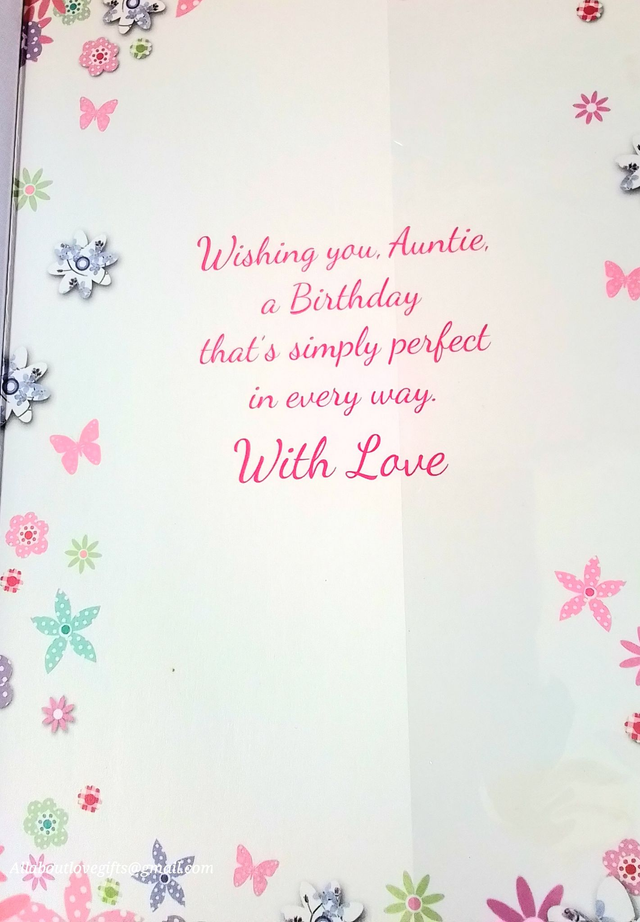 Wishing you, Auntie,
a Birthday
that's simply perfect
in every way.
With Love
Allaboutlovegifts@gmail.com